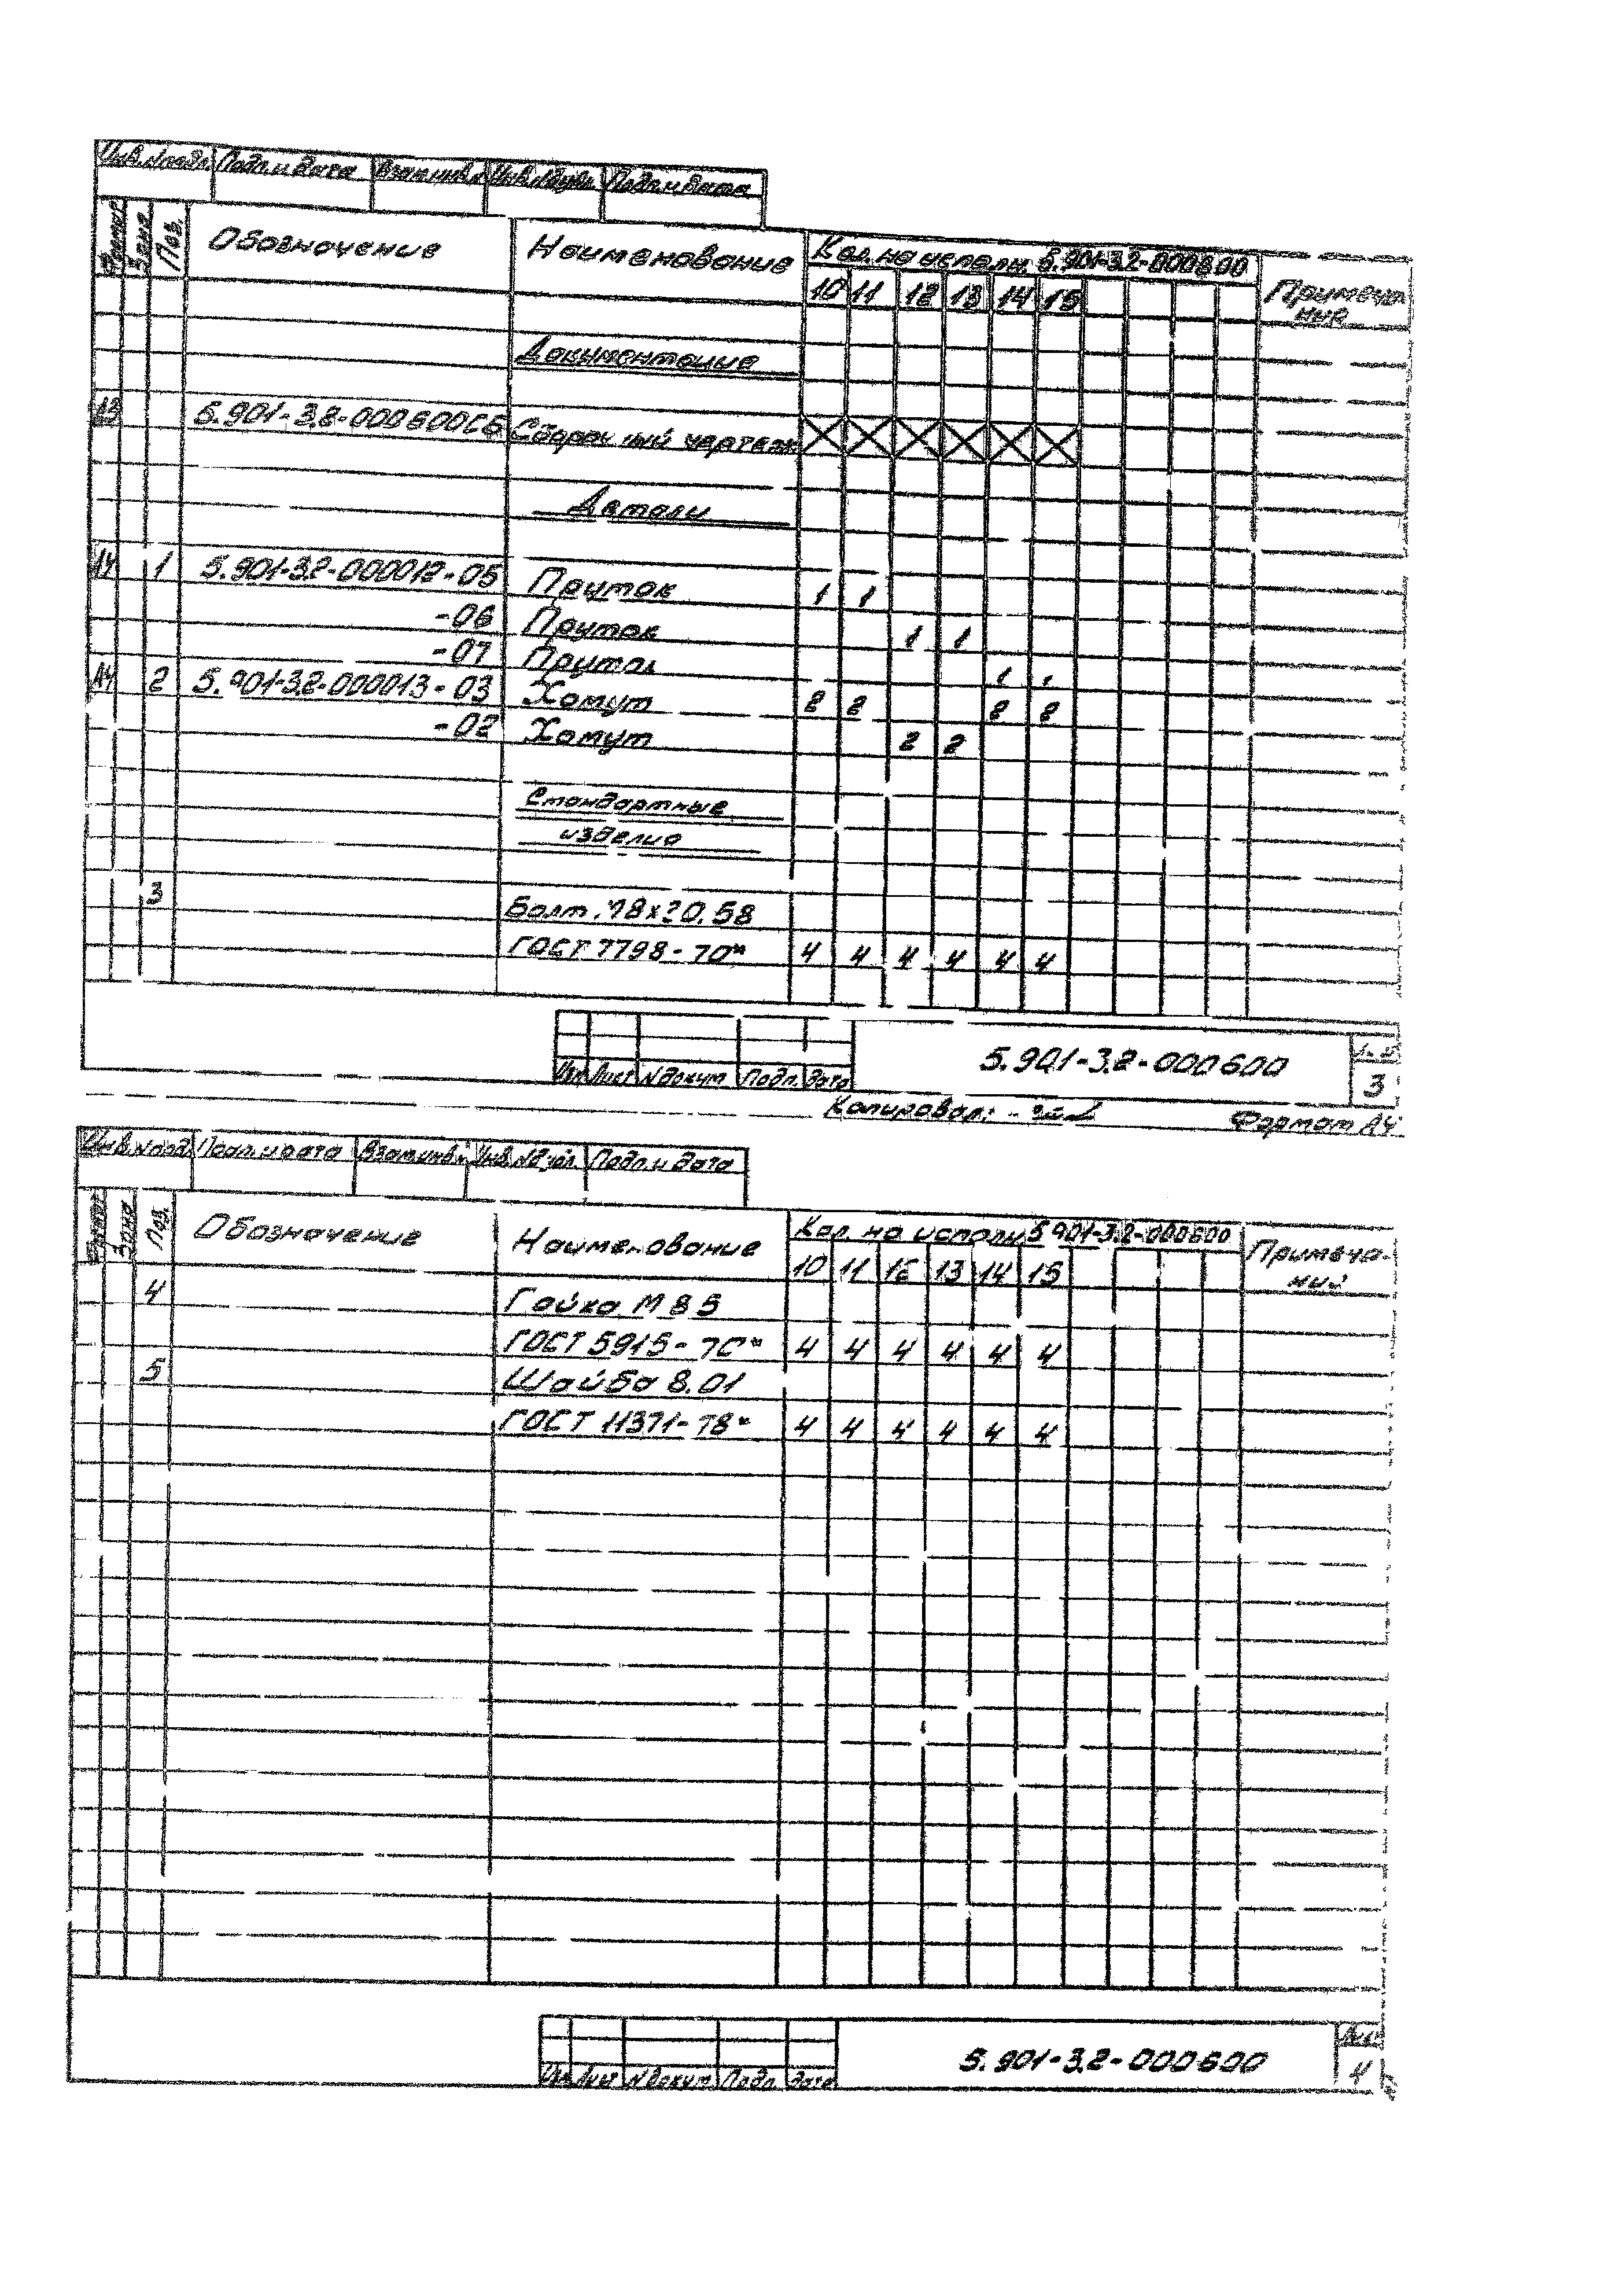 Инв.№подл. Подп. и дата Взам.инв.№ Инв.№дубл. Подп. и дата
Формат Зона Поз. Обозначение Наименование Кол. на исполн. 5.901-3.2-000600 Примеча-
10 11 12 13 14 15 ние
Документация
А3 5.901-3.2-000600СБ Сборочный чертеж
Детали
А4 1 5.901-3.2-000012-05 Пруток 1 1
-06 Пруток 1 1
-07 Пруток 1 1
А4 2 5.901-3.2-000013-03 Хомут 2 2 2 2
-02 Хомут 2 2
Стандартные
изделия
3 Болт М8х20.58
ГОСТ 7798-70* 4 4 4 4 4 4
Изм Лист №докум Подп. Дата 5.901-3.2-000600 3
Копировал: Формат А4
Инв.№подл. Подп. и дата Взам.инв.№ Инв.№дубл. Подп. и дата
Формат Зона Поз. Обозначение Наименование Кол. на исполн. 5.901-3.2-000600 Примеча-
10 11 12 13 14 15 ние
4 Гайка М8 5
ГОСТ 5915-70* 4 4 4 4 4 4
5 Шайба 8.01
ГОСТ 11371-78* 4 4 4 4 4 4
Изм Лист №докум Подп. Дата 5.901-3.2-000600 Лист
4